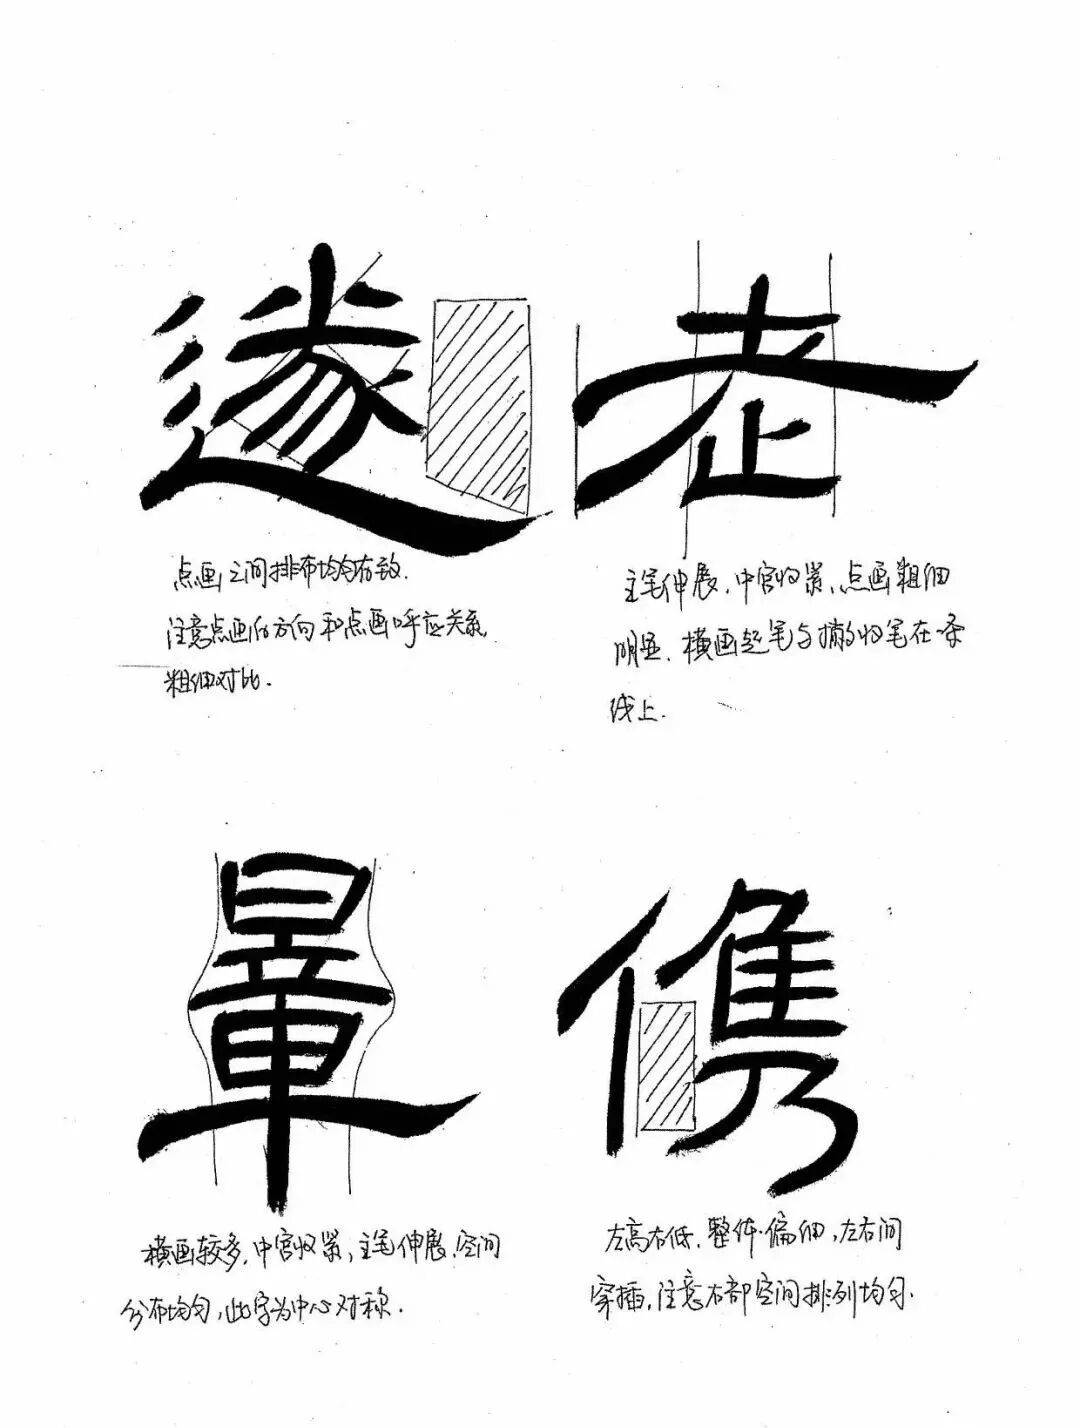 遂
老
点画之间排布均匀有致.
注意点画的方向和点画呼应关系,
粗细对比.
主笔伸展,中宫收紧,点画粗细
明显,横画起笔与撇的收笔在一条
线上.
量
儁
横画较多,中宫收紧,主笔伸展,空间
分布均匀,此字为中心对称.
左高右低,整体偏细,左右间
穿插,注意右部空间排列均匀.